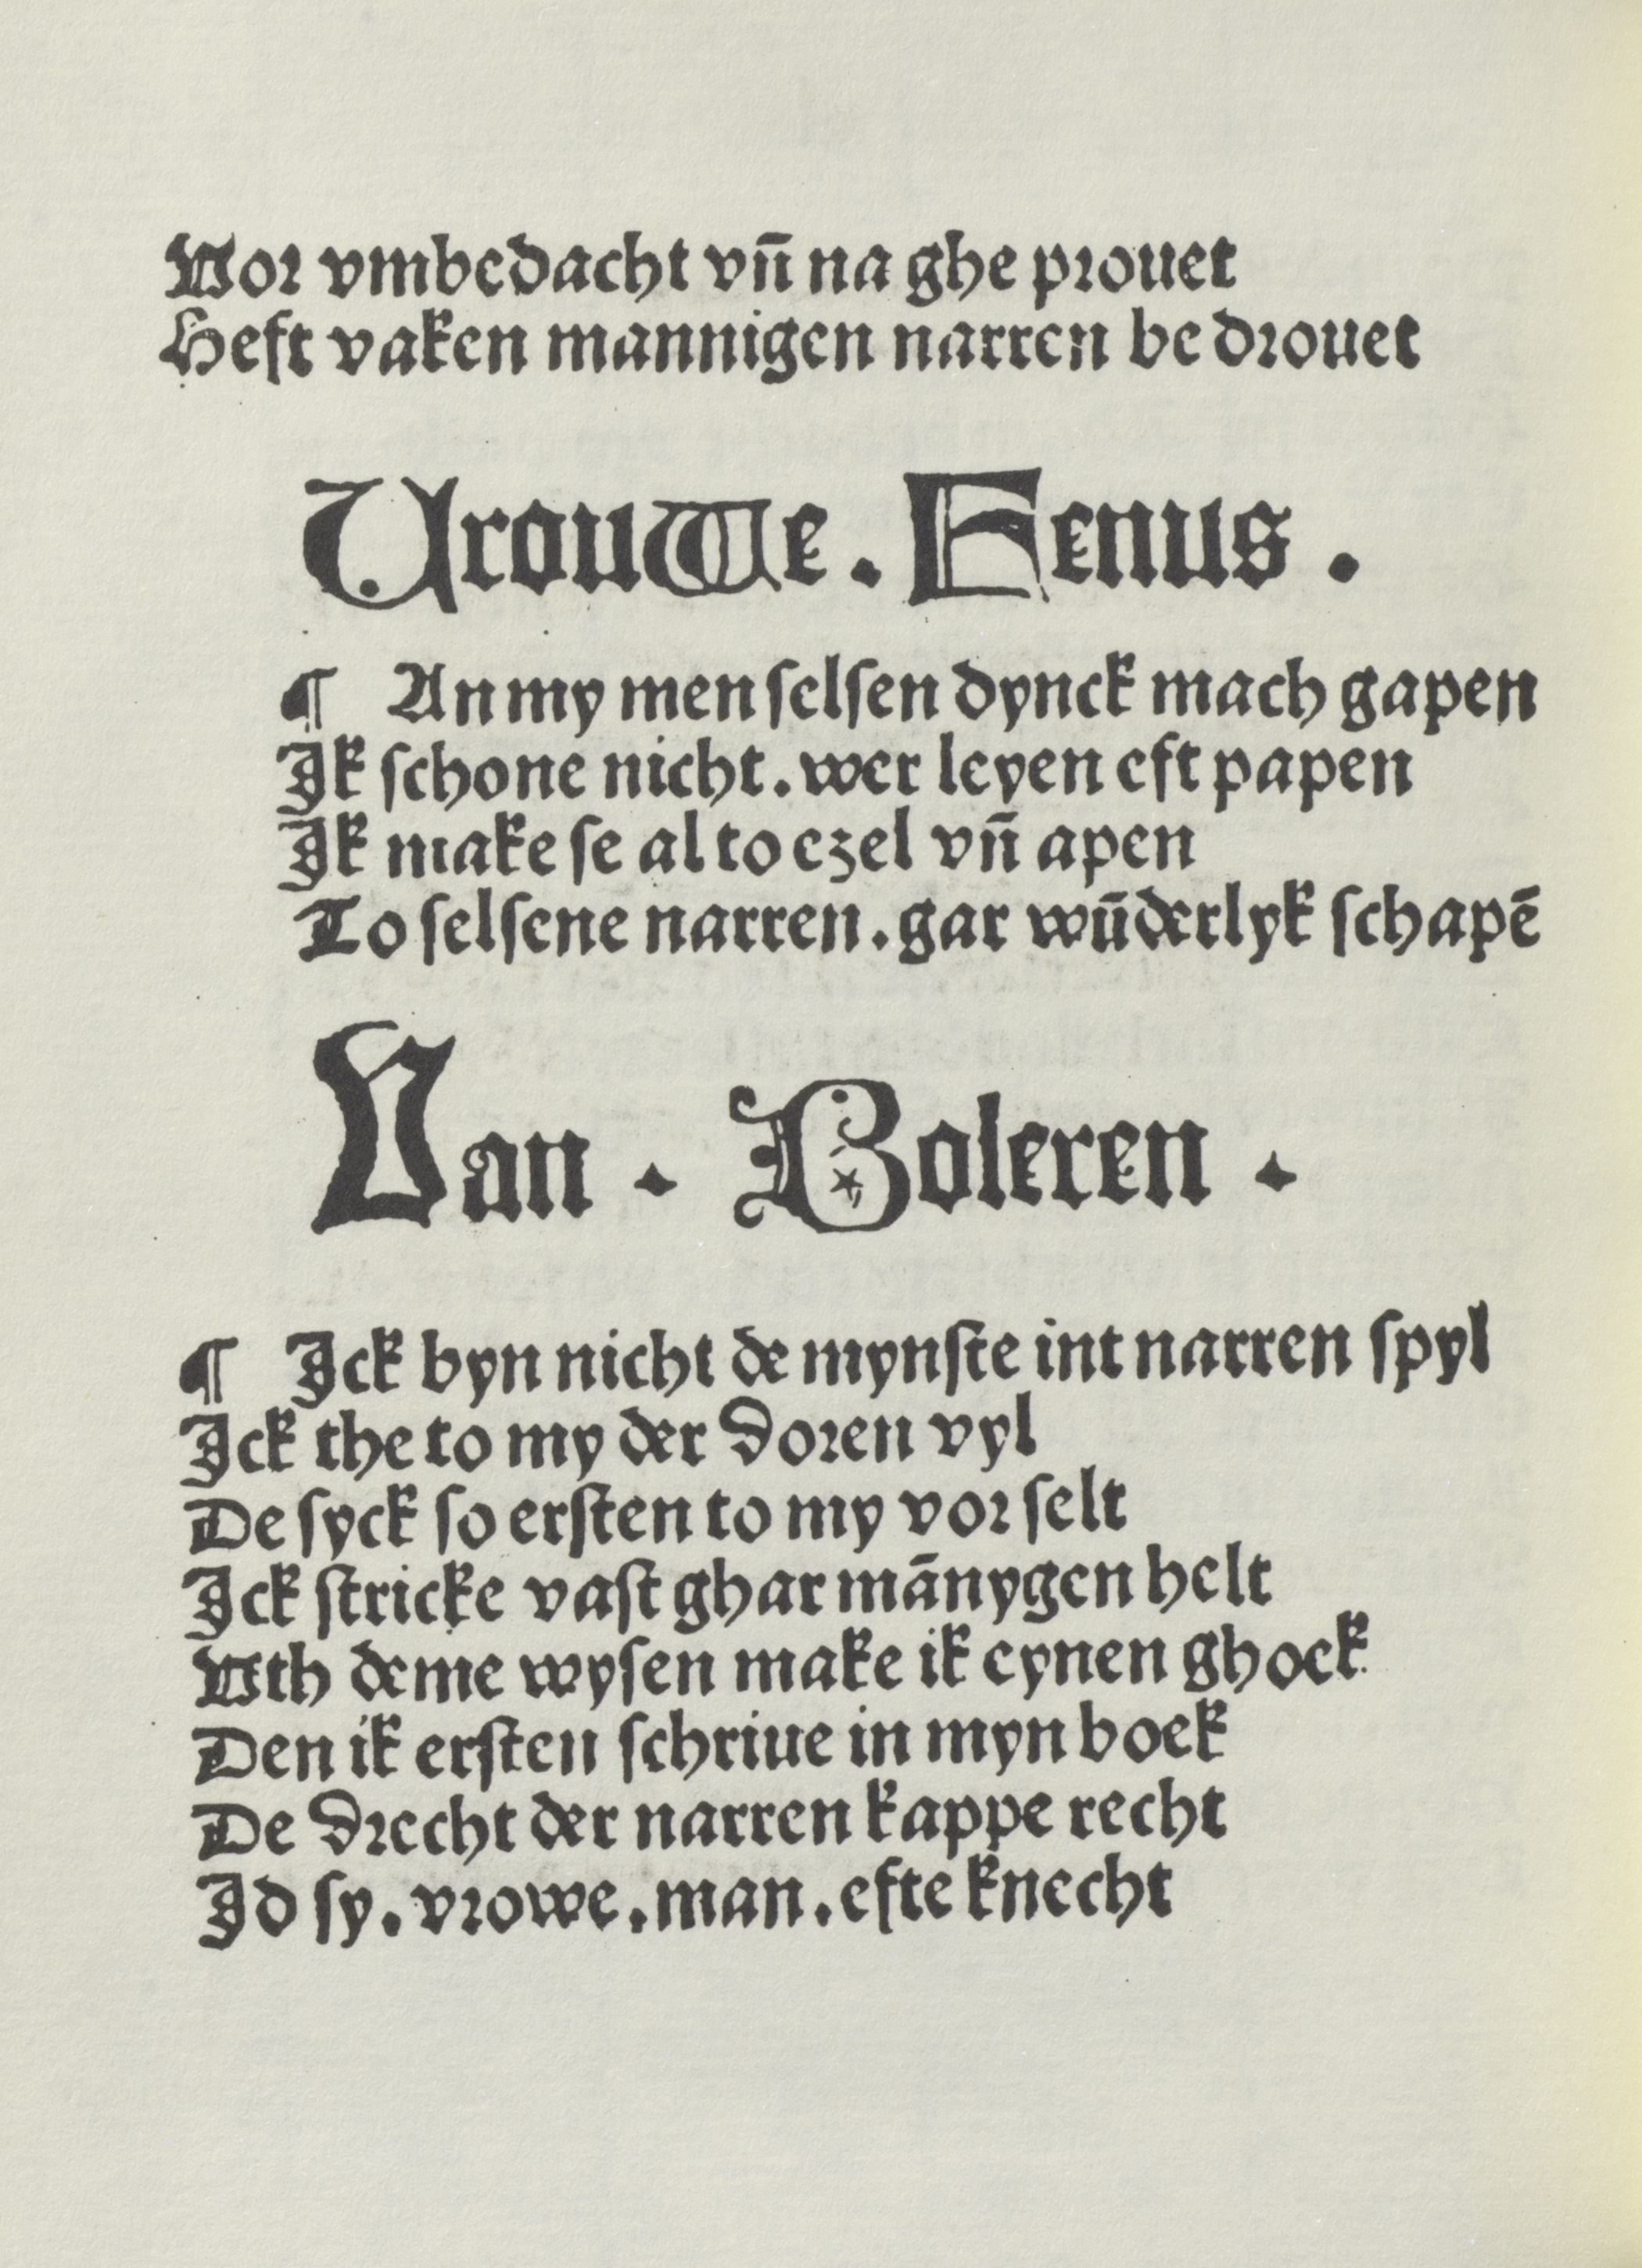 Vor vmbedacht vn̄ na ghe prouet
Heft vaken mannigen narren be drouet
Vrouwe . Fenus .
¶ An my men selsen dynck mach gapen
Ik schone nicht . wer leyen eft papen
Ik make se al to ezel vn̄ apen
To selsene narren . gar wūderlyk schapē
Van . Boleren .
¶ Ick byn nicht de mynste int narren spyl
Ick the to my der doren vyl
De syck so ersten to my vor selt
Ick stricke vast ghar mānygen helt
Vth deme wysen make ik eynen ghock
Den ik ersten schriue in myn boek
De drecht der narren kappe recht
Id sy . vrowe . man . efte knecht